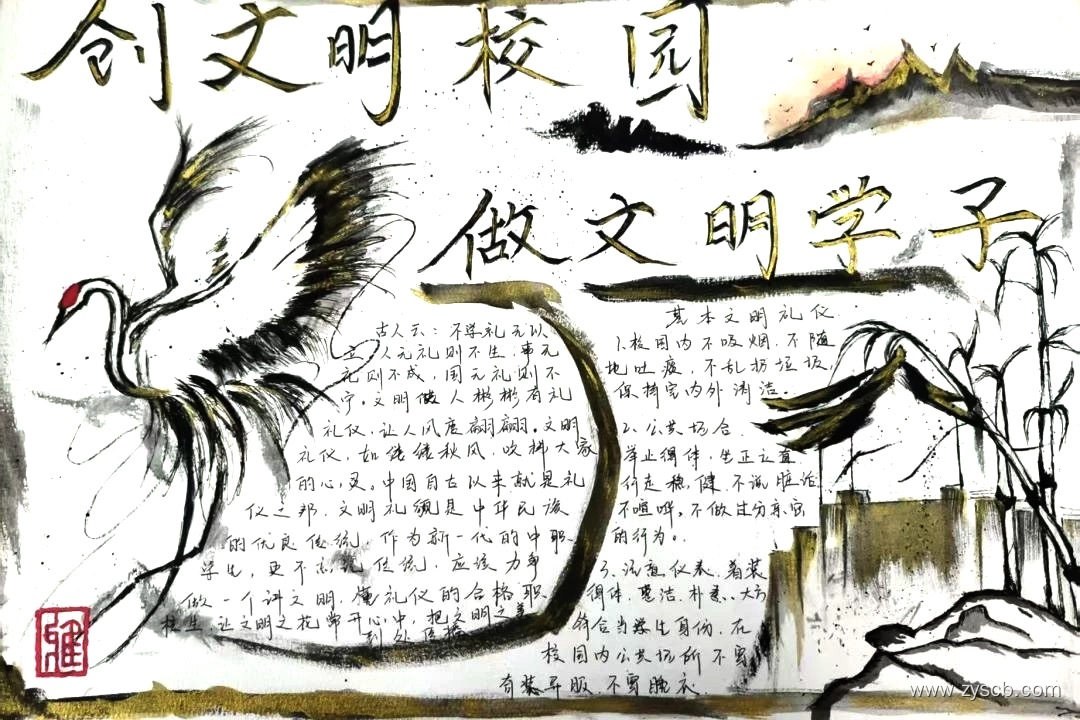 创文明校园
做文明学子
古人云：不学礼无以
立，人无礼则不生，事无
礼则不成，国无礼则不
宁。文明使人彬彬有礼
礼仪，让人风度翩翩。文明
礼仪，如缕缕秋风，吹抖大家
的心灵。中国自古以来就是礼
仪之邦，文明礼貌是中华民族
的优良传统，作为新一代的中职
学生，更不忘记传统，应该力争
做一个讲文明，懂礼仪的合格职
校生，让文明之花常开心中，把文明之美
到处传播
基本文明礼仪
1.校园内不吸烟，不随
地吐痰，不乱扔垃圾，
保持室内外清洁。
2.公共场合，
举止得体，坐正立直，
行走稳健，不说脏话
不喧哗，不做过分亲密
的行为。
3.注意仪表，着装
得体，整洁，朴素、大方
符合当学生身份，在
校园内公共场所不穿
奇装异服，不穿睡衣。
雅
www.zyscb.com